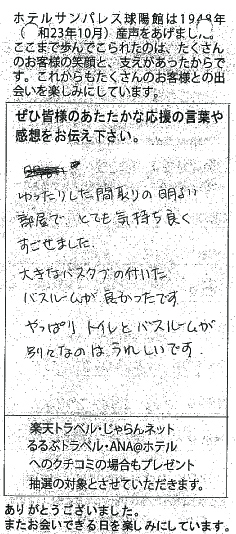 ホテルサンパレス球陽館は1948年
(　和23年10月）産声をあげました。
ここまで歩んでこられたのは、たくさん
のお客様の笑顔と、支えがあったからで
す。これからもたくさんのお客様との出
会いを楽しみにしています。
ぜひ皆様のあたたかな応援の言葉や
感想をお伝え下さい。
ゆったりした間取りの明るい
部屋で とても気持ち良く
すごせました
大きなバスタブの付いた
バスルームが良かったです
やっぱり トイレとバスルームが
別々なのは うれしいです.
楽天トラベル・じゃらんネット
るるぶトラベル・ANA@ホテル
へのクチコミの場合もプレゼント
抽選の対象とさせていただきます。
ありがとうございました。
またお会いできる日を楽しみにしています。